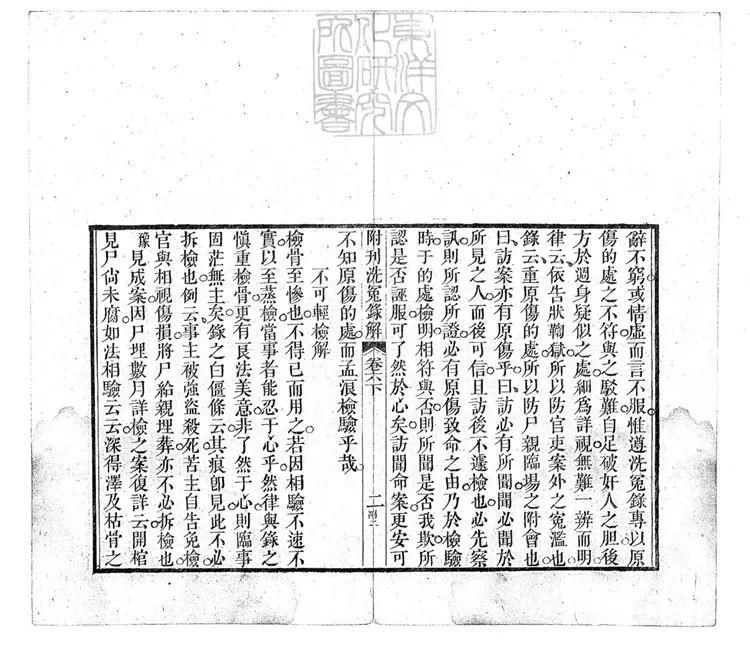 東洋文
化研究
所圖書
辭不窮或情虛而言不服惟遵洗冤錄專以原
傷的處之不符與之駁難自足破奸人之胆後
方於週身疑似之處細為詳視無難一辨而明
律云依告狀鞫獄所以防官吏案外之冤濫也
錄云重原傷的處所以防尸親臨場之附會也
曰訪案亦有原傷乎曰訪必有所聞聞必聞於
所見之人而後可信且訪後不遽檢也必先察
訊則所認所證必有原傷致命之由乃於檢驗
時于的處檢明相符與否則所聞是否我欺所
認是否誣服可了然於心矣訪聞命案更安可
附刊洗冤錄解
卷六下
二
附二
不知原傷的處而孟浪檢驗乎哉
不可輕檢解
檢骨至慘也不得已而用之若因相驗不速不
實以至蒸檢當事者能忍于心乎然律與錄之
慎重檢骨更有良法美意非了然于心則臨事
固茫無主矣錄之白僵條云其痕卽見此不必
拆檢也例云事主被強盜殺死苦主自告免檢
官與相視傷損將尸給親埋葬亦不必拆檢也
豫見成案因尸埋數月詳檢之案復詳云開棺
見尸尙未腐如法相驗云云深得澤及枯骨之